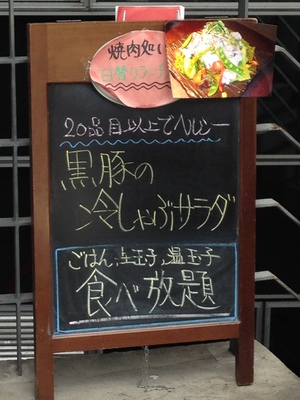 焼肉処い
日替りランチ
20品目以上でヘルシー
黒豚の
冷しゃぶサラダ
ごはん、生玉子、温玉子
食べ放題